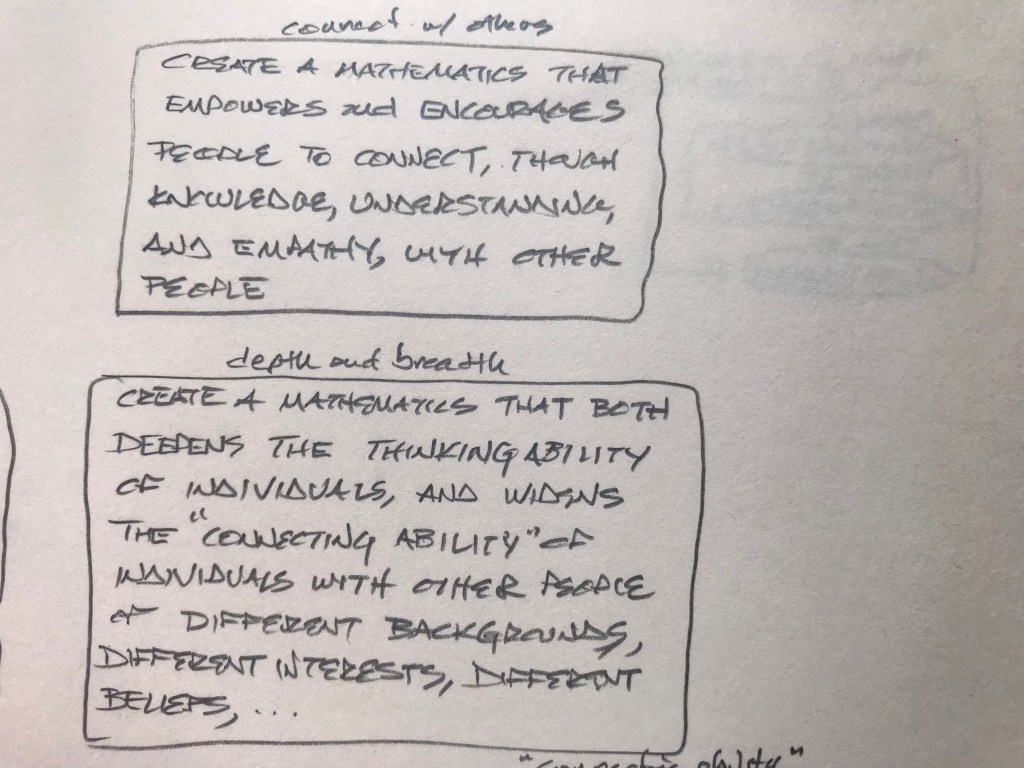 connect w/ others
CREATE A MATHEMATICS THAT
EMPOWERS and ENCOURAGES
PEOPLE TO CONNECT, THOUGH
KNOWLEDGE, UNDERSTANDING,
AND EMPATHY, WITH OTHER
PEOPLE
depth and breadth
CREATE A MATHEMATICS THAT BOTH
DEEPENS THE THINKING ABILITY
OF INDIVIDUALS, AND WIDENS
THE "CONNECTING ABILITY" OF
INDIVIDUALS WITH OTHER PEOPLE
OF DIFFERENT BACKGROUNDS,
DIFFERENT INTERESTS, DIFFERENT
BELIEFS, ...
ability"